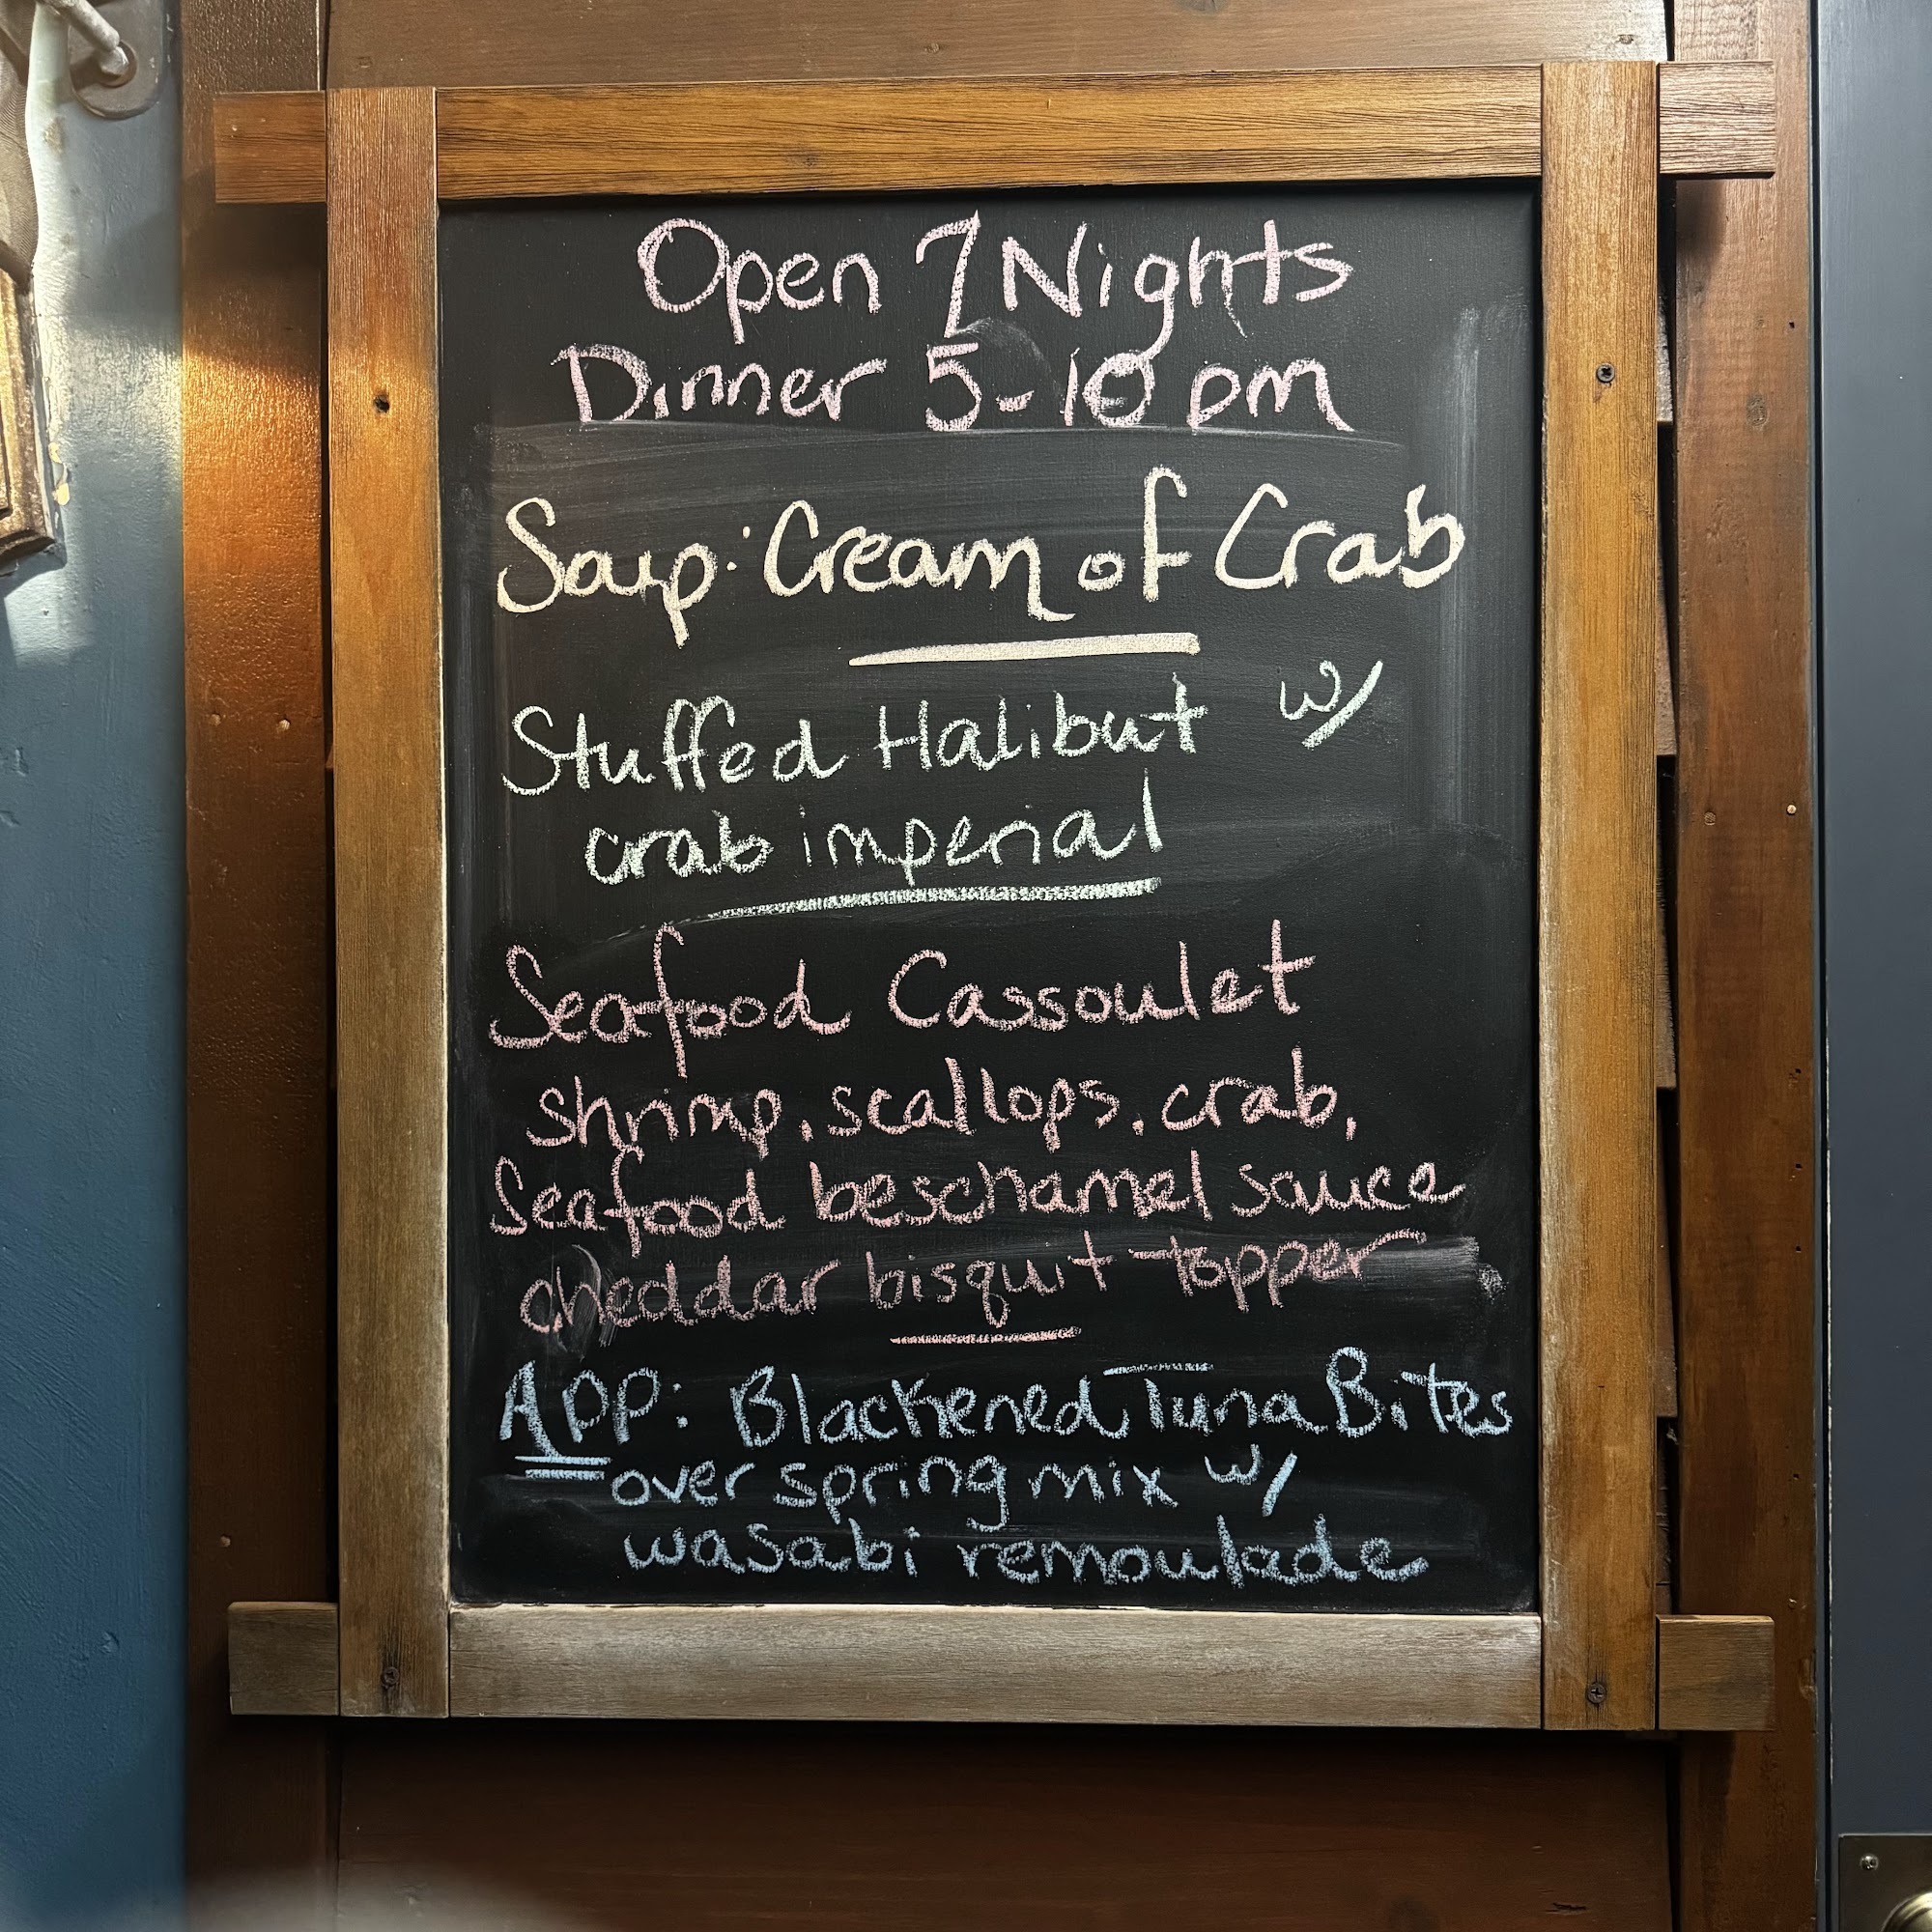 Open 7 Nights
Dinner 5-10 pm
Soup: Cream of Crab
Stuffed Halibut w/
crab imperial
Seafood Cassoulet
shrimp, scallops, crab,
Seafood beschamel sauce
cheddar bisquit topper
APP: Blackened Tuna Bites
over spring mix w/
wasabi remoulade